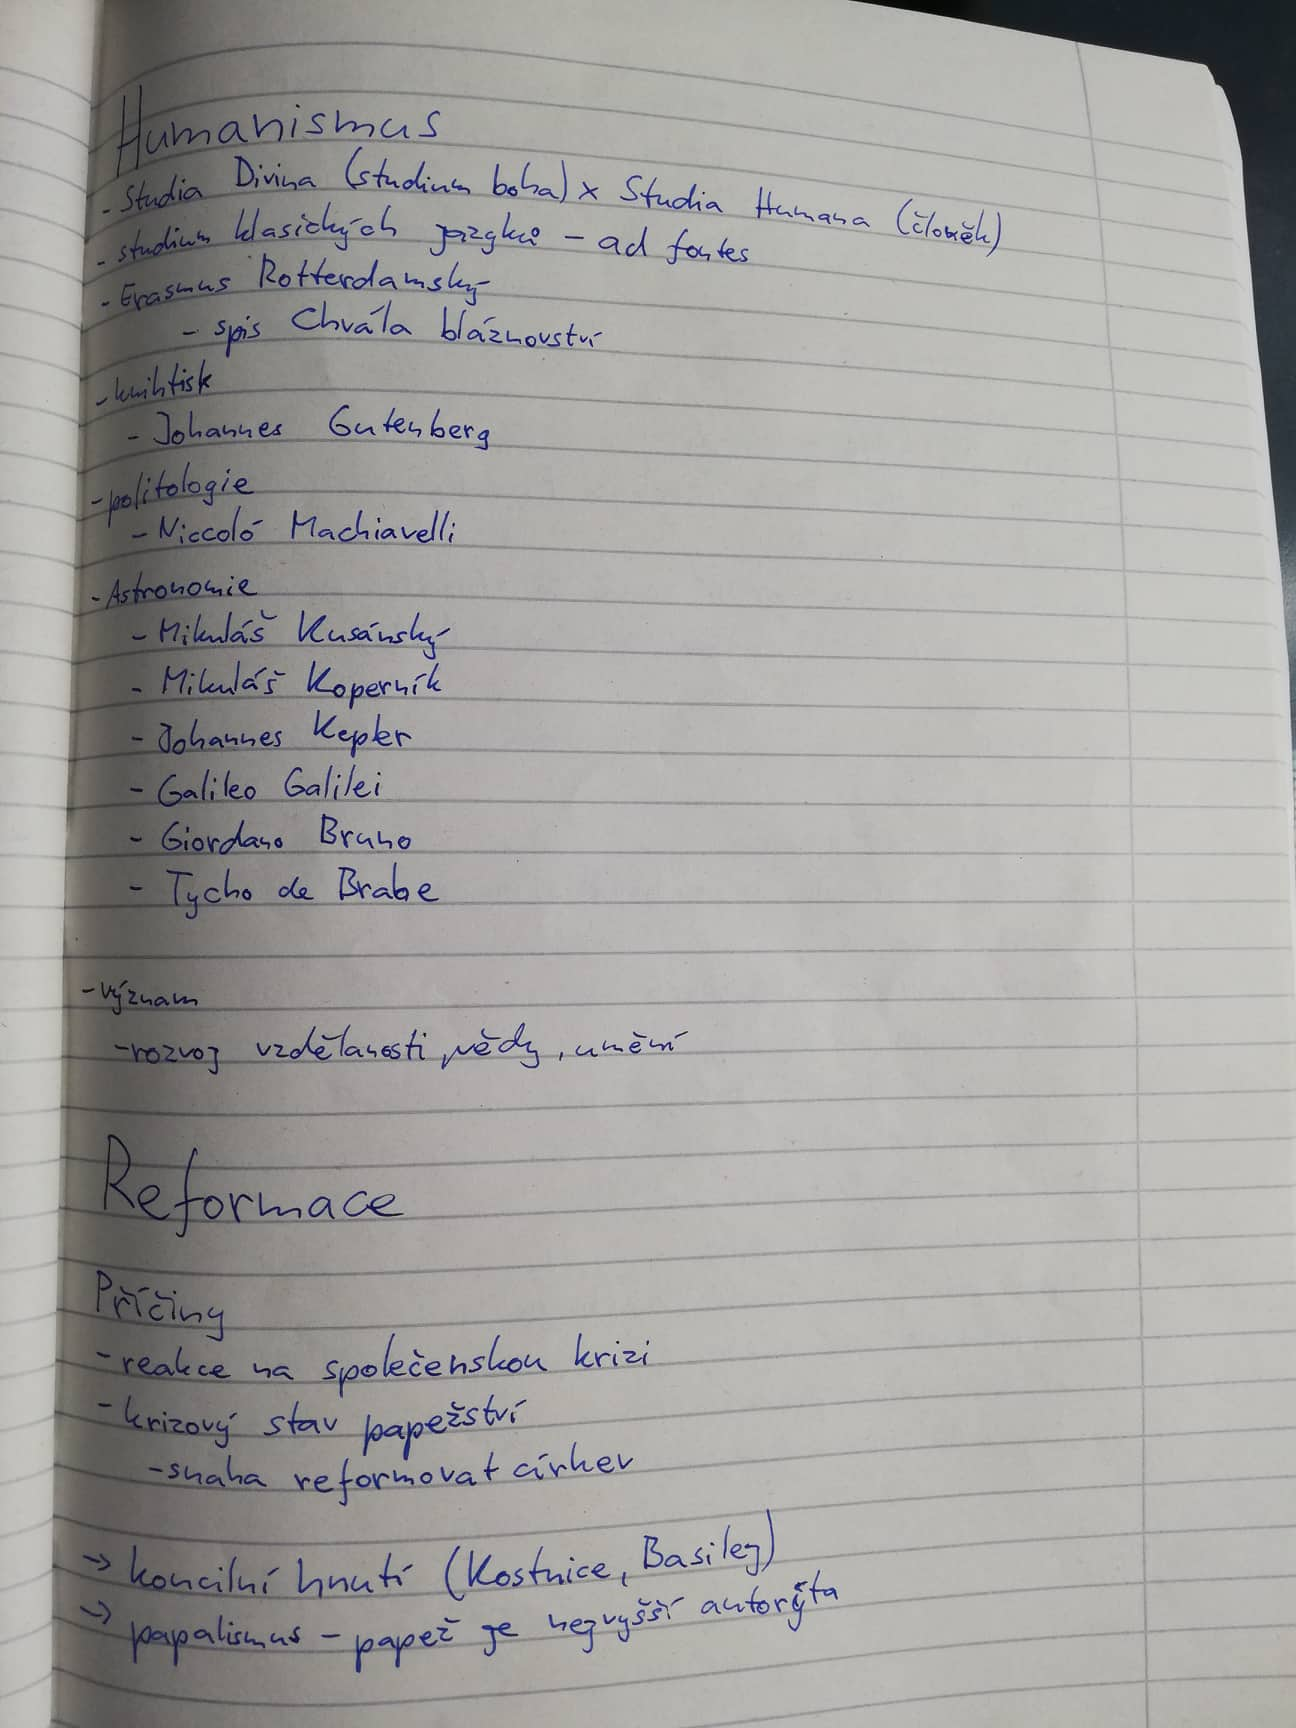 Humanismus
- Studia Divina (studium boha) x Studia Humana (člověk)
- studium klasických jazyků - ad fontes
- Erasmus Rotterdamský
- spis Chvála bláznovství
- knihtisk
- Johannes Gutenberg
- politologie
- Niccoló Machiavelli
- Astronomie
- Mikuláš Kusánský
- Mikuláš Koperník
- Johannes Kepler
- Galileo Galilei
- Giordano Bruno
- Tycho de Brahe
- význam
- rozvoj vzdělanosti, vědy, umění
Reformace
Příčiny
- reakce na společenskou krizi
- krizový stav papežství
- snaha reformovat církev
→ koncilní hnutí (Kostnice, Basilej)
→ papalismus - papež je nejvyšší autorita